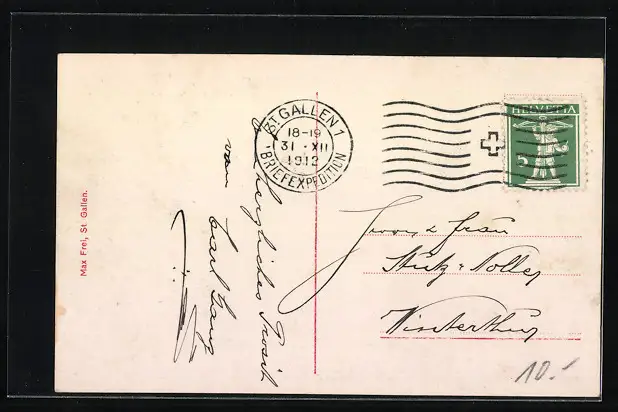 ST. GALLEN 1
18-19
31 . XII
1912
BRIEFEXPEDITION
HELVETIA
5
herzliches Prosit
von Carl Lanz
Herrn & Frau
Winterthur
Max Frei, St. Gallen.
10.-